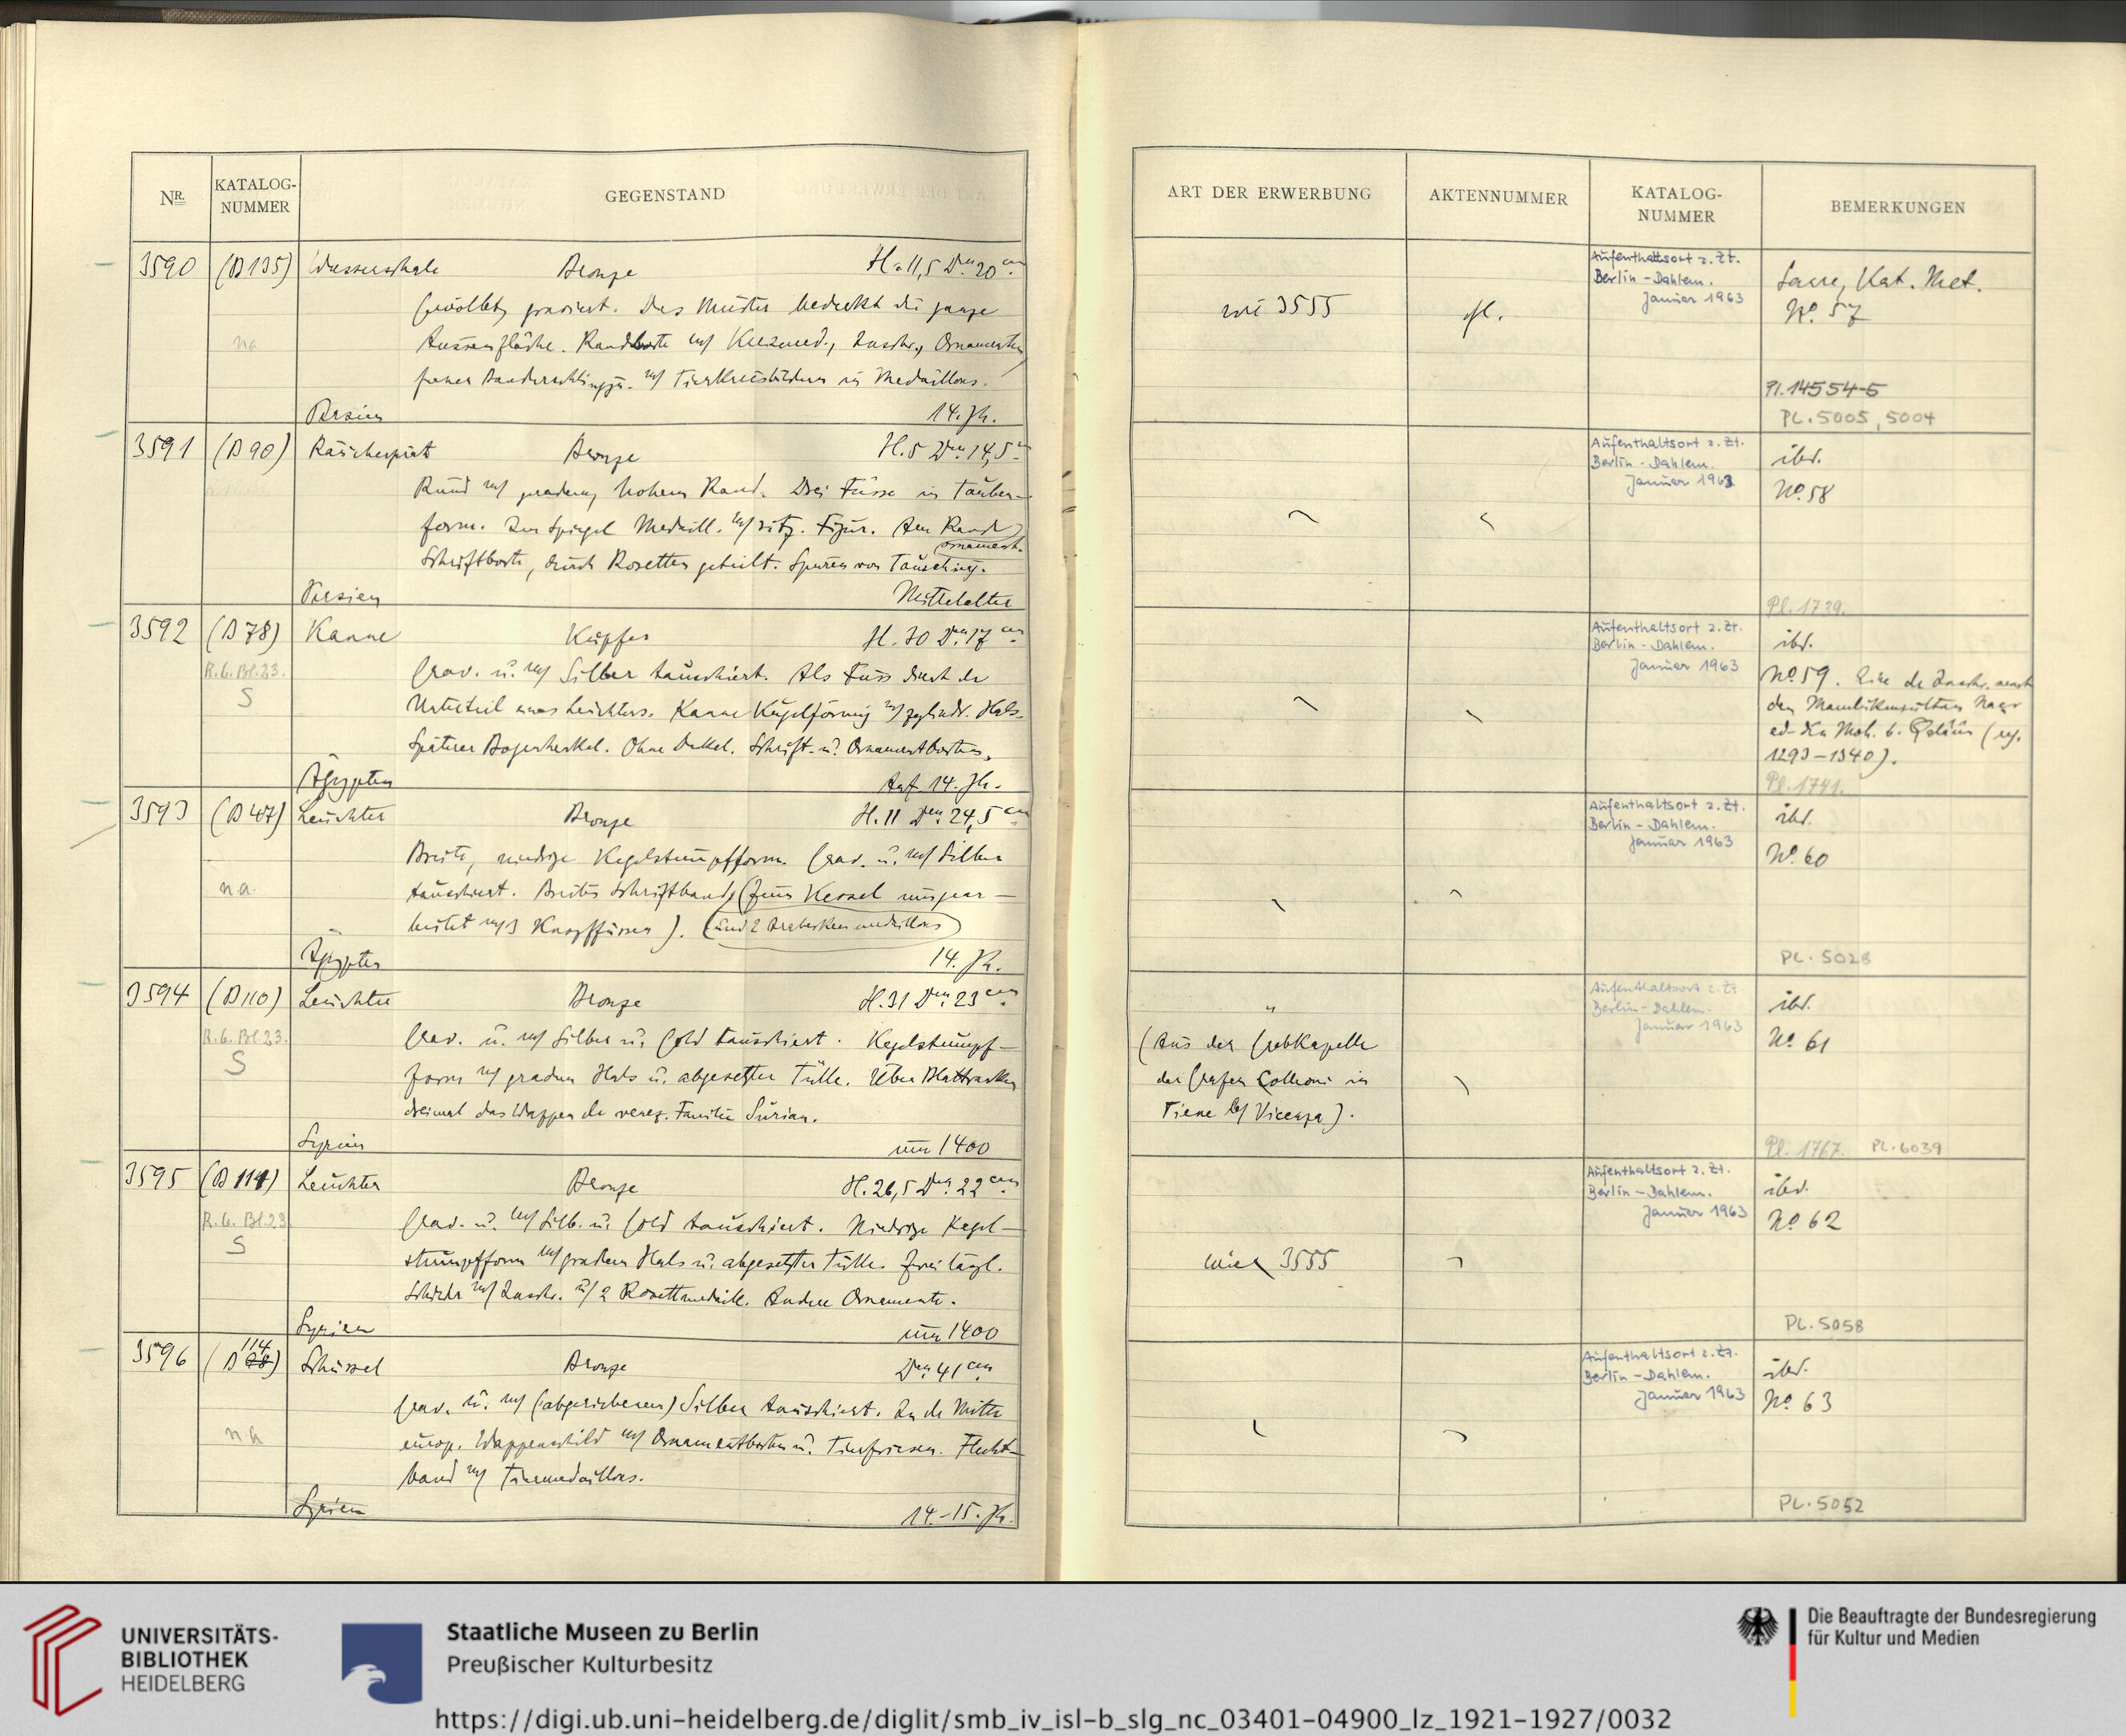 NR. KATALOG-NUMMER GEGENSTAND
3590 (B135) Wasserschale Bronze H. 11,5 Dm. 20 cm
Gewölbt, graviert. Das Muster bedeckt die ganze
Aussenfläche. Randborte mit Inschr., Ornamenten
na
ferner Bandverschlingg. mit Tierkreisbildern in Medaillons.
Persien 14. Jh.
3591 (B 90) Räuchergerät Bronze H. 5 Dm. 14,5
Rund mit geradem, hohem Rand. Drei Füsse in Tauben-
form. Im Spiegel Medaill. mit sitz. Figur. Am Rand
ornament.
Schriftborte, durch Rosetten geteilt. Spuren von Tauschierg.
Persien Mittelalter
3592 (B 78) Kanne Kupfer H. 30 Dm. 17 cm
R.6.Bl.23.
S
Grav. u. mit Silber tauschiert. Als Fuss dient der
Unterteil eines Leuchters. Kanne Kugelförmig mit zylindr. Hals.
Späterer Bogenhenkel. Ohne Deckel. Schrift- u. Ornamentborten.
Ägypten Anf. 14. Jh.
3593 (B 47) Leuchter Bronze H. 11 Dm. 24,5 cm
Breite, niedrige Kegelstumpfform. Grav. u. mit Silber
na.
tauschiert. Breites Schriftband (Zum Kessel umgear-
beitet mit 3 Knopffüssen). (und 2 Arabesken medaillons)
Ägypten 14. Jh.
3594 (B 110) Leuchter Bronze H. 31 Dm. 23 cm
R.6.Bl.23.
S
Grav. u. mit Silber u. Gold tauschiert. Kegelstumpf-
form mit gradem Hals u. abgesetzter Tülle. Über Blattranken
dreimal das Wappen der venez. Familie Surian.
Syrien um 1400
3595 (B 111) Leuchter Bronze H. 26,5 Dm. 22 cm
R.6.Bl.23
S
Grav. u. mit Silb. u. Gold tauschiert. Niedrige Kegel-
stumpfform mit gradem Hals u. abgesetzter Tülle. Zwei längl.
Schilder mit Inschr. u. 2 Rosettmedaill. Andere Ornamente.
Syrien um 1400
3596 (B 114) Schüssel Bronze Dm. 41 cm
Grav. u. mit (abgeriebenem) Silber tauschiert. In der Mitte
na
europ. Wappenschild mit Ornamentborten u. Tierfriesen. Flecht-
band mit Tiermedaillons.
Syrien 14.-15. Jh.
ART DER ERWERBUNG AKTENNUMMER KATALOG-NUMMER BEMERKUNGEN
Aufenthaltsort z. Zt.
Berlin-Dahlem.
Januar 1963
Sarre, Kat. Met.
No. 57
wie 3555
Pl. 14554-5
PL. 5005, 5004
Aufenthaltsort z. Zt.
Berlin-Dahlem.
Januar 1963
ibd.
No. 58
Pl. 1739.
Aufenthaltsort z. Zt.
Berlin-Dahlem.
Januar 1963
ibd.
No. 59. Eine der Inschr. nennt
den Mamlukensultan Nasr
ed-Din Moh. b. Qalaun (reg.
1293-1340).
Pl. 1741.
Aufenthaltsort z. Zt.
Berlin-Dahlem.
Januar 1963
ibd.
No. 60
PL. 5028
Aufenthaltsort z. Zt.
Berlin-Dahlem.
Januar 1963
ibd.
No. 61
"
(Aus der Grabkapelle
der Grafen Colleoni in
Tiene bei Vicenza).
Pl. 1767. PL. 6039
Aufenthaltsort z. Zt.
Berlin-Dahlem.
Januar 1963
ibd.
No. 62
wie 3555
PL. 5058
Aufenthaltsort z. Zt.
Berlin-Dahlem.
Januar 1963
ibd.
No. 63
PL. 5052
UNIVERSITÄTS-
BIBLIOTHEK
HEIDELBERG
Staatliche Museen zu Berlin
Preußischer Kulturbesitz
Die Beauftragte der Bundesregierung
für Kultur und Medien
https://digi.ub.uni-heidelberg.de/diglit/smb_iv_isl-b_slg_nc_03401-04900_lz_1921-1927/0032